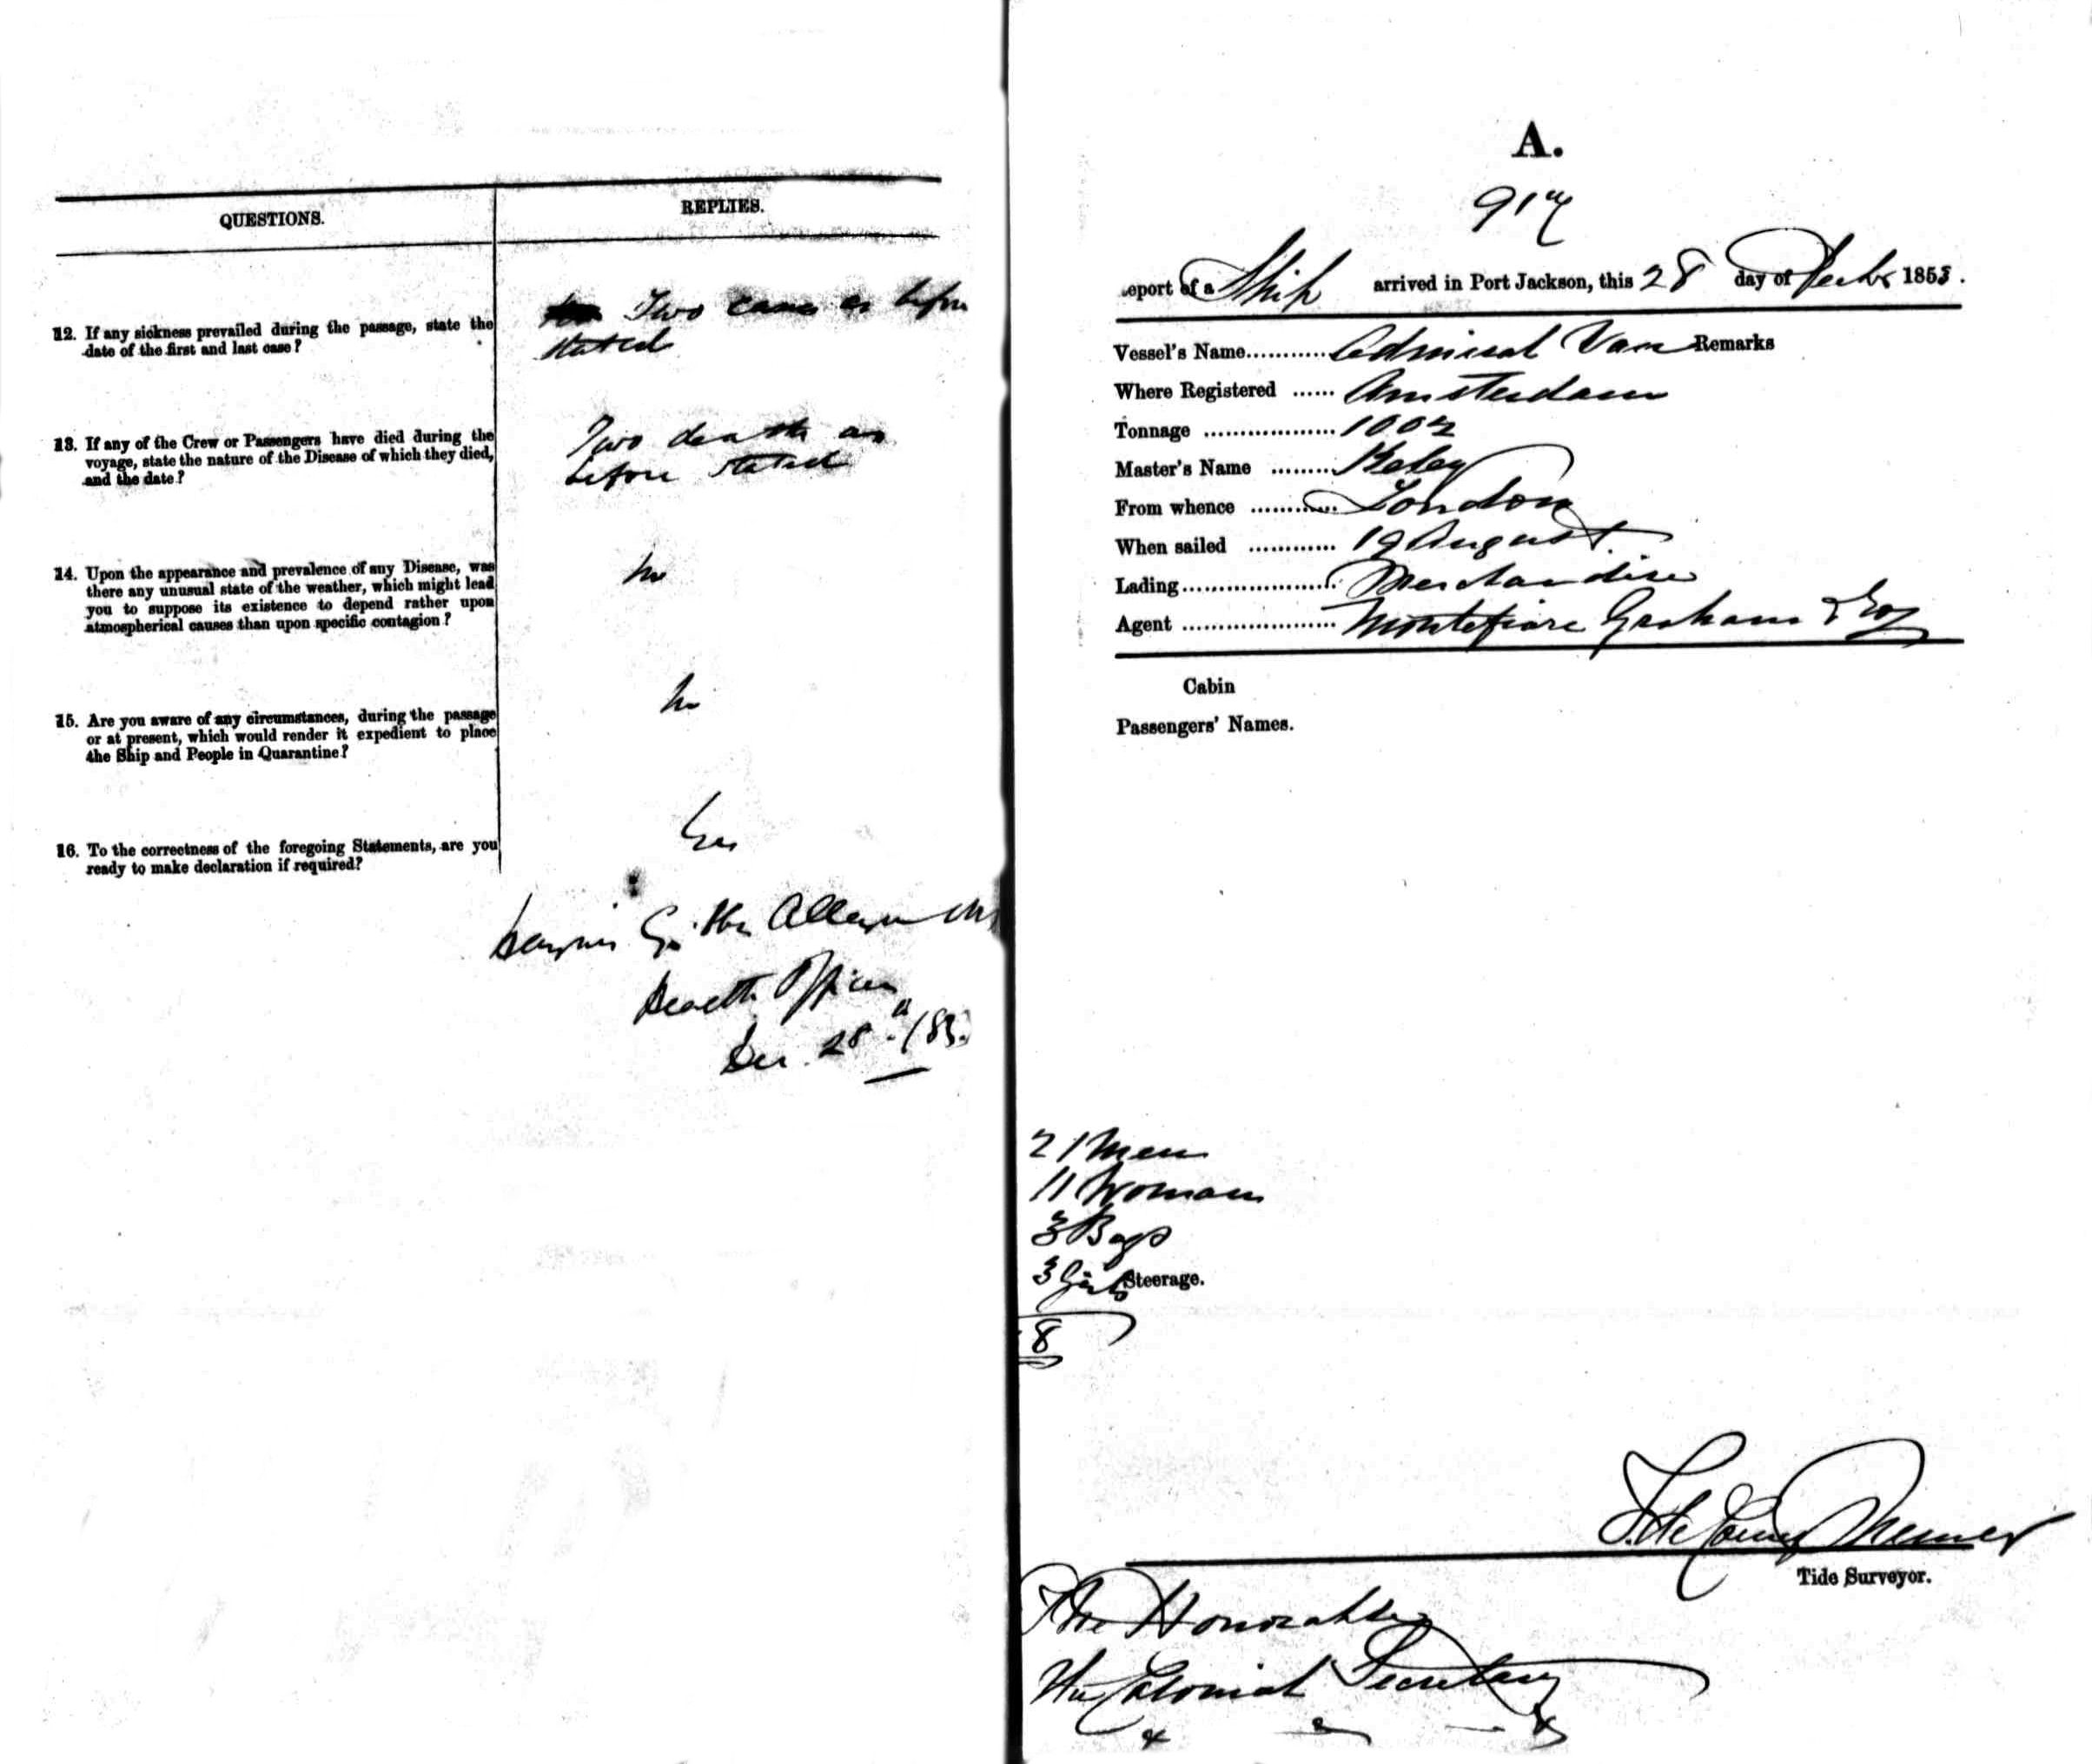 QUESTIONS.
REPLIES.
12. If any sickness prevailed during the passage, state the
date of the first and last case?
Two cases as before
stated
13. If any of the Crew or Passengers have died during the
voyage, state the nature of the Disease of which they died,
and the date?
Two deaths as
before stated
14. Upon the appearance and prevalence of any Disease, was
there any unusual state of the weather, which might lead
you to suppose its existence to depend rather upon
atmospherical causes than upon specific contagion?
No
15. Are you aware of any circumstances, during the passage
or at present, which would render it expedient to place
the Ship and People in Quarantine?
No
16. To the correctness of the foregoing Statements, are you
ready to make declaration if required?
Yes
Health Officer
Dec 28th 185
A.
eport of a Ship arrived in Port Jackson, this 28 day of 1853.
Vessel's Name Admiral Van Remarks
Where Registered Amsterdam
Tonnage 1002
Master's Name
From whence London
When sailed 19 August
Lading Merchandise
Agent Montefiore Graham & Coy
Cabin
Passengers' Names.
21 Men
11 Woman
3 Boys
3 Girls Steerage.
8
Tide Surveyor.
The Honorable
The Colonial Secretary